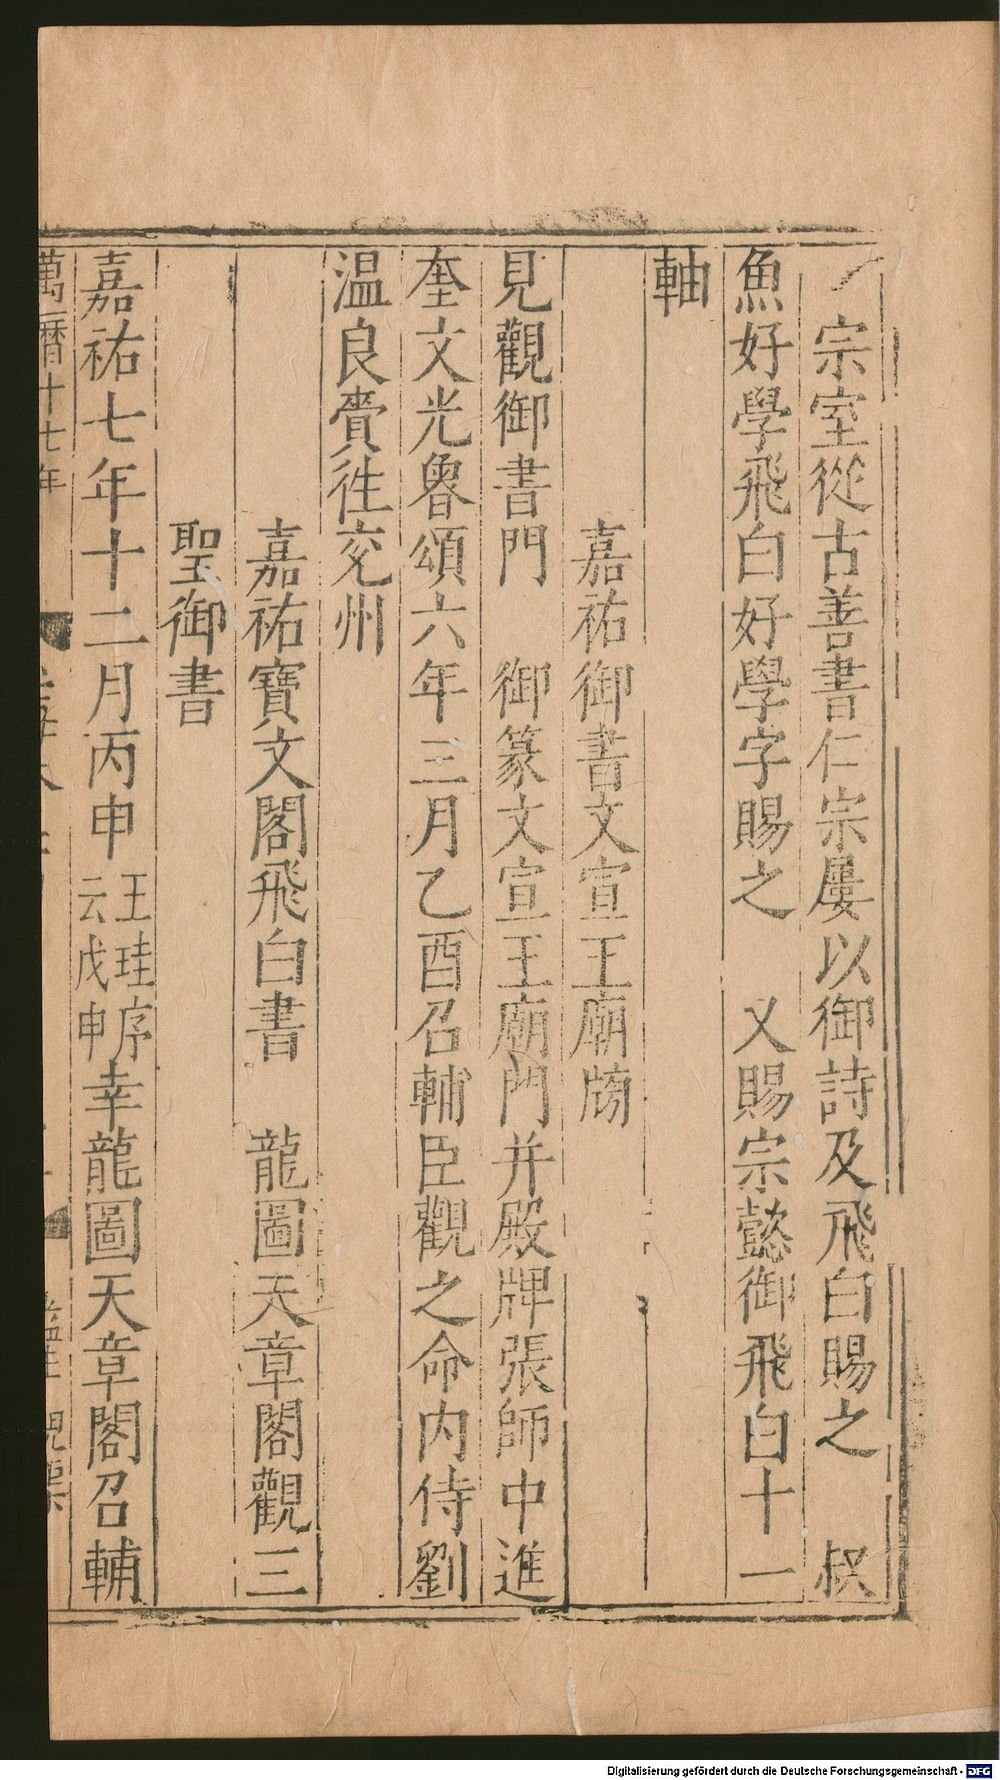 宗室從古善書仁宗屢以御詩及飛白賜之　叔
魚好學飛白好學字賜之　又賜宗懿御飛白十一
軸
嘉祐御書文宣王廟牓
見觀御書門　御篆文宣王廟門并殿牌張師中進
奎文光魯頌六年三月乙酉召輔臣觀之命内侍劉
温良賫徃兖州
嘉祐寶文閣飛白書　龍圖天章閣觀三
聖御書
嘉祐七年十二月丙申王珪序云戊申幸龍圖天章閣召輔
萬曆十七年
Digitalisierung gefördert durch die Deutsche Forschungsgemeinschaft - DFG